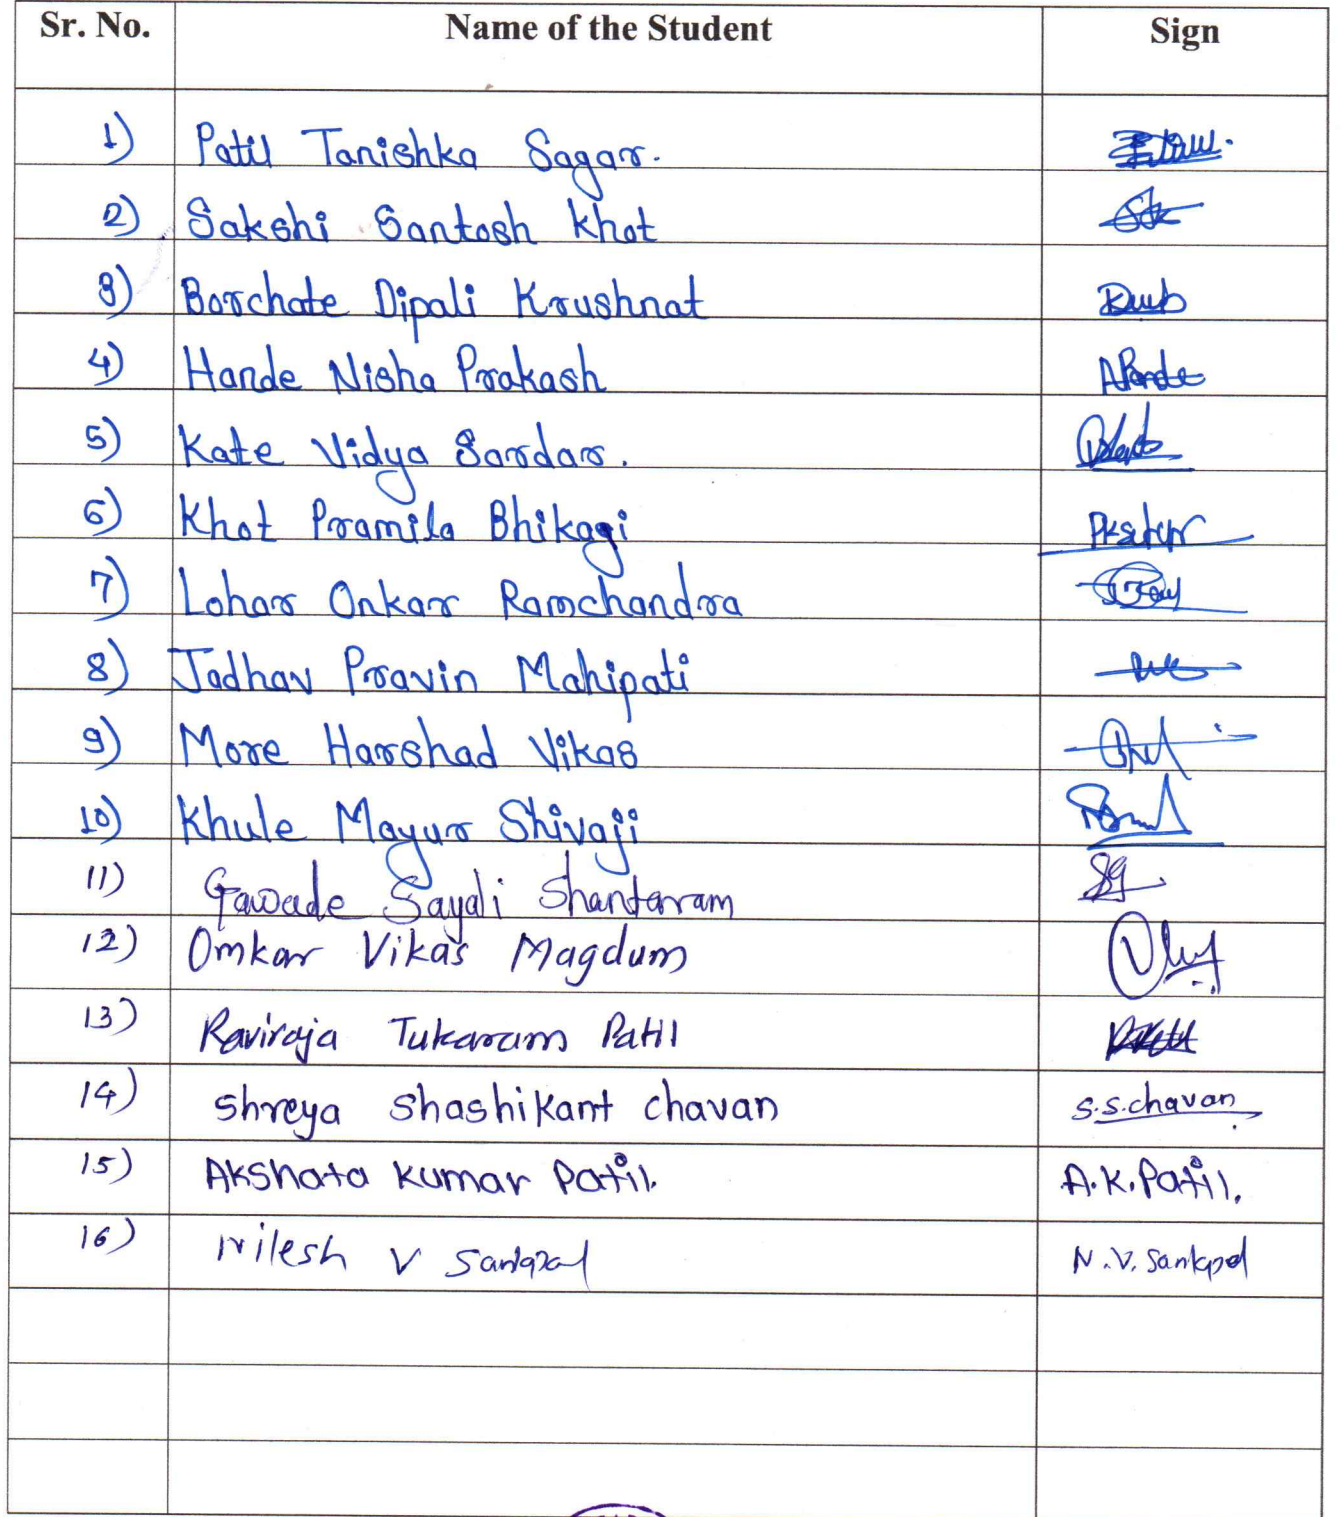 Sr. No. Name of the Student Sign
1) Patil Tanishka Sagar.
2) Sakshi Santosh Khot
3) Borchate Dipali Krushnat
4) Hande Nisha Prakash
5) Kate Vidya Sardar.
6) Khot Pramila Bhikagi
7) Lohar Onkar Ramchandra
8) Jadhav Pravin Mahipati
9) More Harshad Vikas
10) Khule Mayur Shivaji
11) Gawade Sayali Shantarram Sg
12) Omkar Vikas Magdum
13) Raviraja Tukaram Patil
14) Shreya Shashikant chavan S.S.chavan
15) Akshata Kumar Patil. A.K.Patil.
16) Nilesh V Sankpal N.V. Sankpal